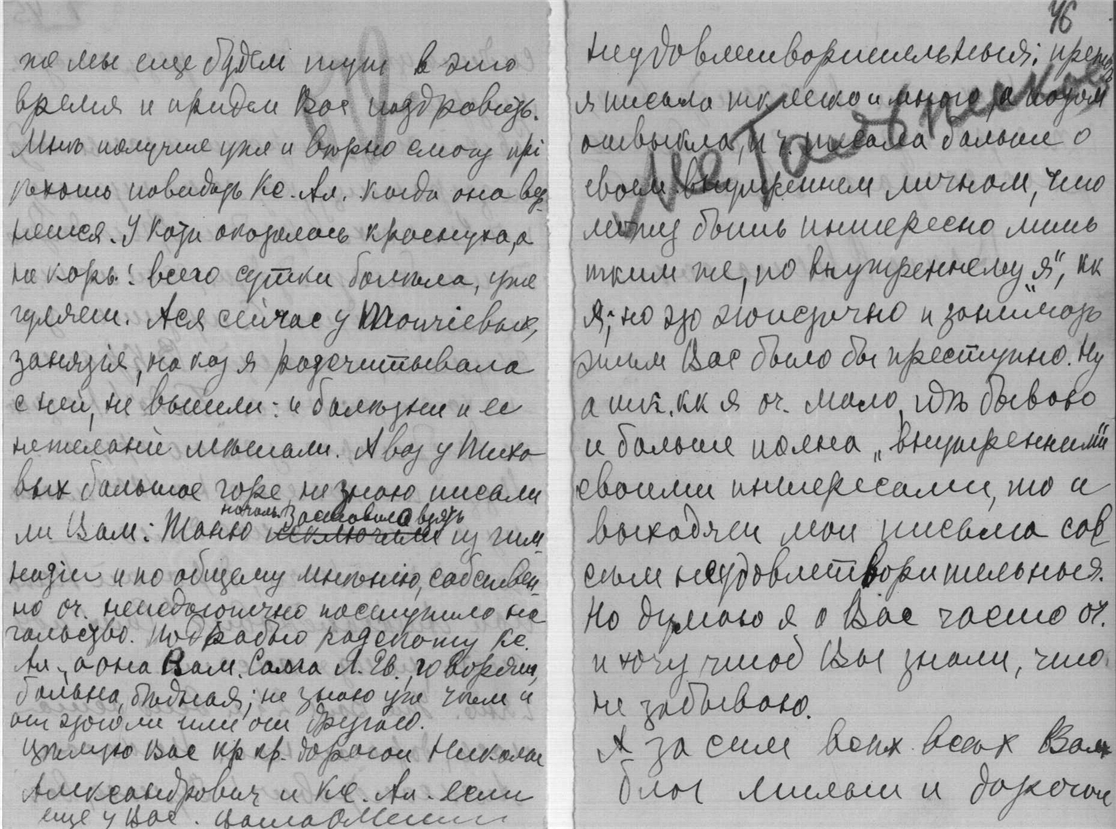 же мы еще будем тут в это
время и придем Вас поздравить.
Мнѣ получше уже и вѣрно смогу прі
ѣхать повидать Кс. Ал. когда она вер
нется. У Кати оказалась краснуха, а
не корь! всего сутки болѣла, уже
гуляет. Ася сейчас у
занятія, на кот я разсчитывала
с ней, не вышли: и болѣзни и ее
нежеланіе мѣшали. А вот у Тихо
вых большое горе, не знаю писали
ли Вам: Таню исключили из гим
началь. заставило взять
назіи и по общему мнѣнію, собствен
но оч. непедагогично поступило на
чальство. Подробно разскажу Кс.
Ал., а она Вам. Сама Л. Ев., говорят,
больна, бѣдная; не знаю уже чѣм и
от этого ли или от другого.
Цѣлую Вас кр. кр. дорогой Николай
Александрович и Кс. Ал. если
еще у Вас.
46
неудовлетворительныя: прежде
я писала тк легко и много, а потом
отвыкла, п.ч. писала больше о
своем внутреннем личном, что
может быть интересно лишь
тким же, по внутреннему „я", кк
я; но это эгоистично и занимать
этим Вас было бы преступно. Ну
а т.к. кк я оч. мало гдѣ бываю
и больше полна „внутренними"
своими интересами, то и
выходят мои письма сов
сѣм неудовлетворительныя.
Но думаю я о Вас часто оч.
и хочу чтоб Вы знали, что
не забываю.
А за сим всѣх всѣх Вам
благ милый и дорогой